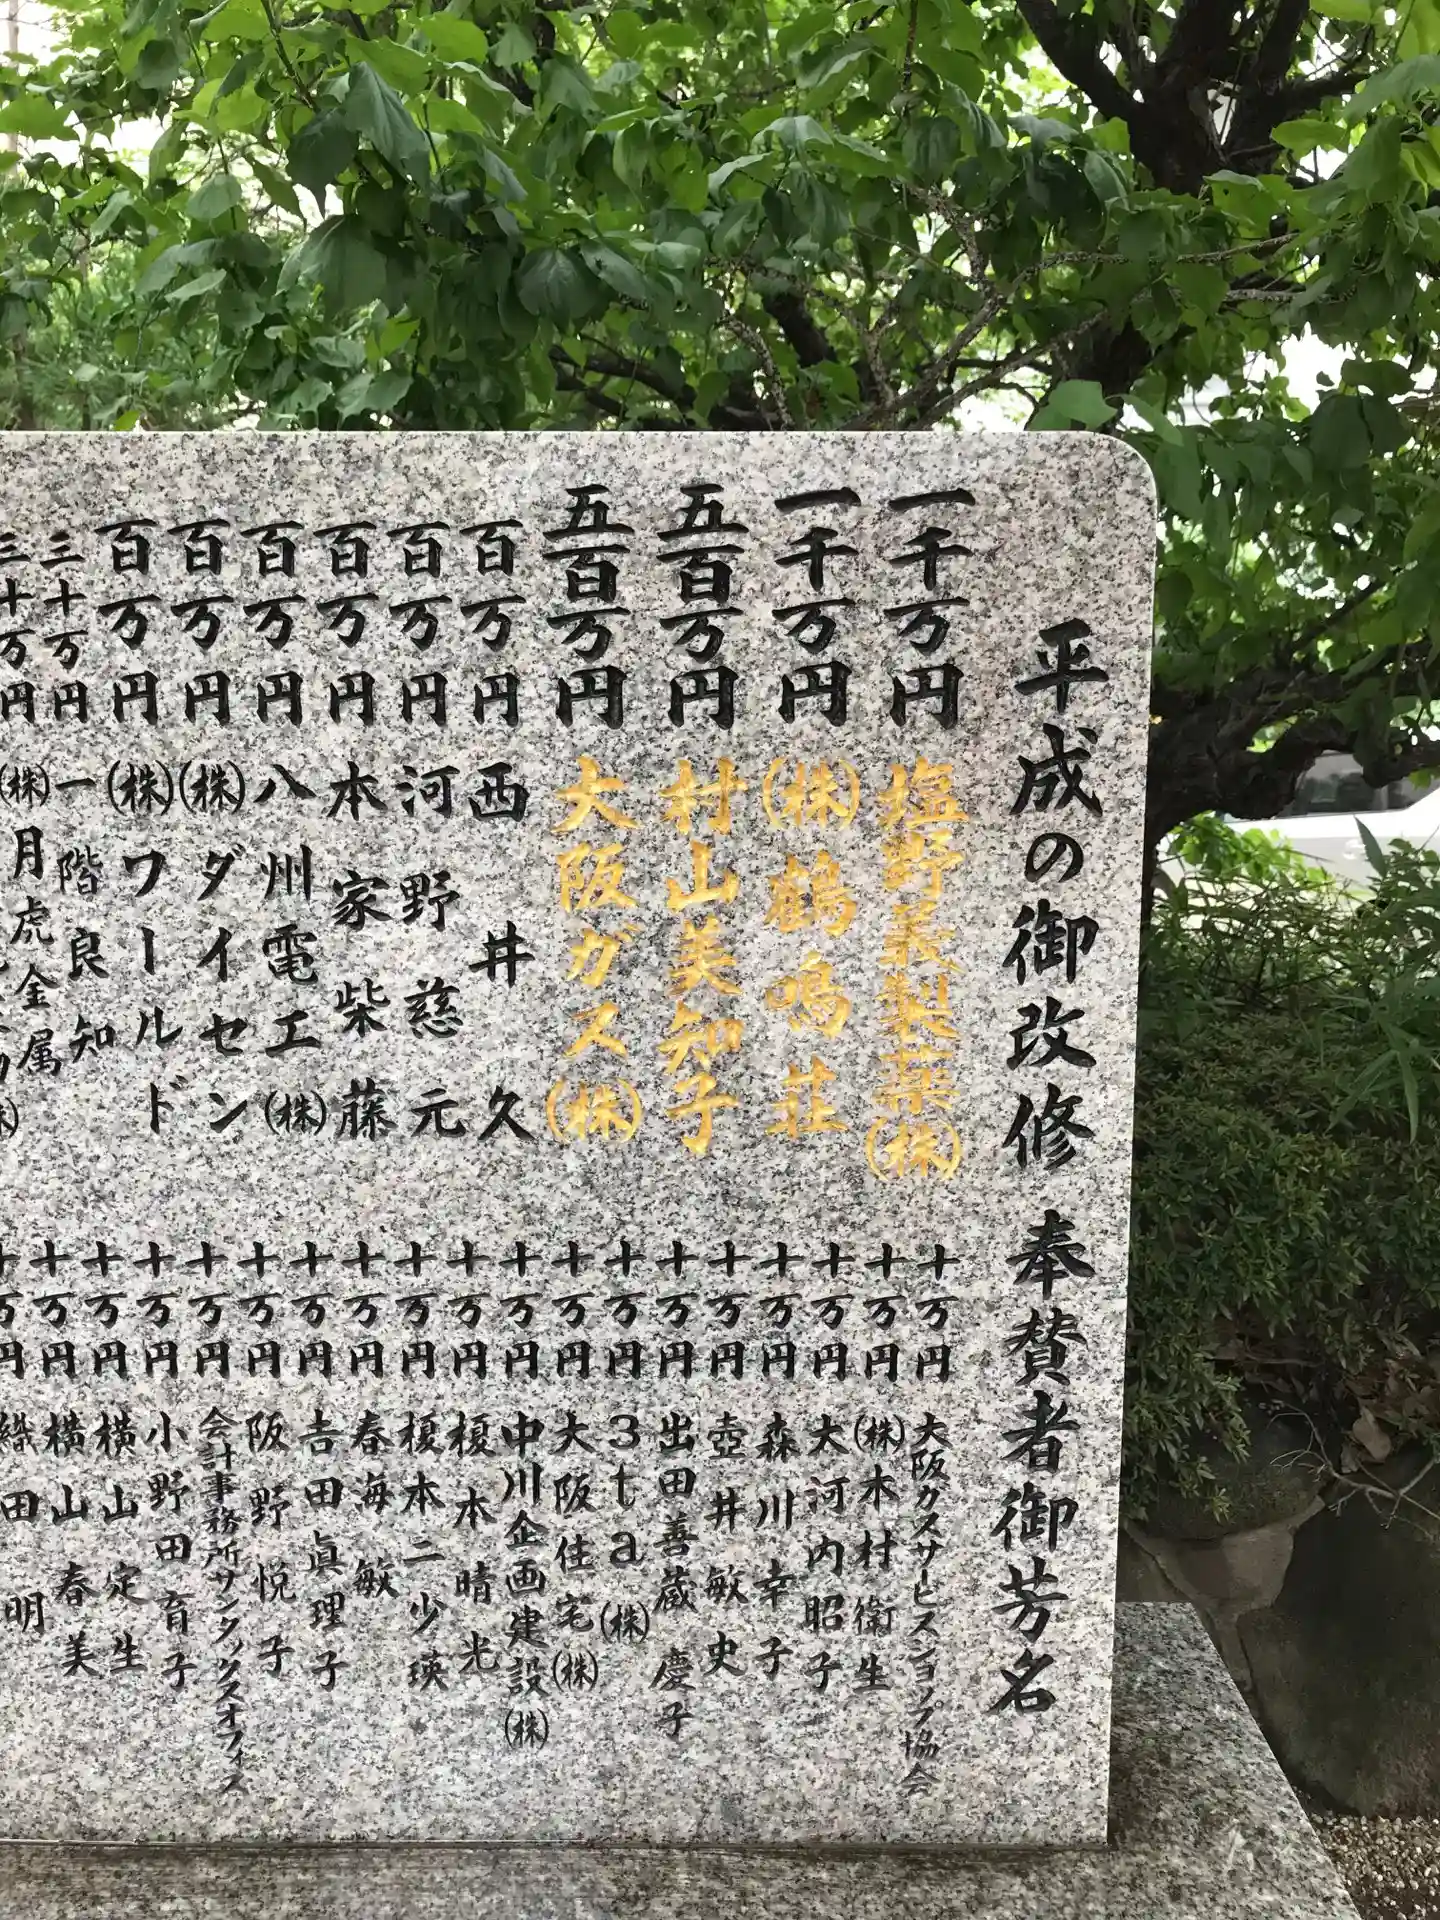 平成の御改修 奉賛者御芳名
一千万円 塩野義製薬(株)
一千万円 (株)鶴鳴荘
五百万円 村山美知子
五百万円 大阪ガス(株)
百万円 西井久
百万円 河野慈元
百万円 本家柴藤
百万円 八州電工(株)
百万円 (株)ダイセン
百万円 (株)ワールド
三十万円 一階良知
三十万円 (株)月虎金属
十万円 大阪ガスサービスショップ協会
十万円 (株)木村衛生
十万円 大河内昭子
十万円 森川幸子
十万円 壺井敏史
十万円 出田善蔵 慶子
十万円 3ta(株)
十万円 大阪住宅(株)
十万円 中川企画建設(株)
十万円 榎本晴光
十万円 榎本二少瑛
十万円 春海敏
十万円 吉田眞理子
十万円 阪野悦子
十万円 会計事務所サンタックスオフィス
十万円 小野田育子
十万円 横山定生
十万円 横山春美
十万円 織田明